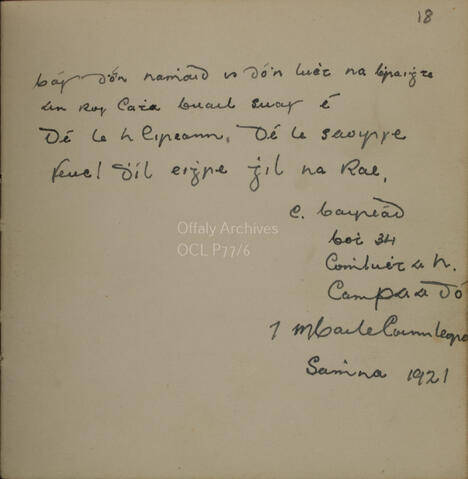 18
bás dó'n namaid is dó'n luċt na
An Rosg Caṫa buail suas é
Dé le h Eireann, Dé le saoirse
Feuc! d'il eirġe ġil na Rae,
C. bairéad
boṫ 34
Comluċt a h.
Campa a Dó
i mbaile
Samna 1921
Offaly Archives
OCL P77/6